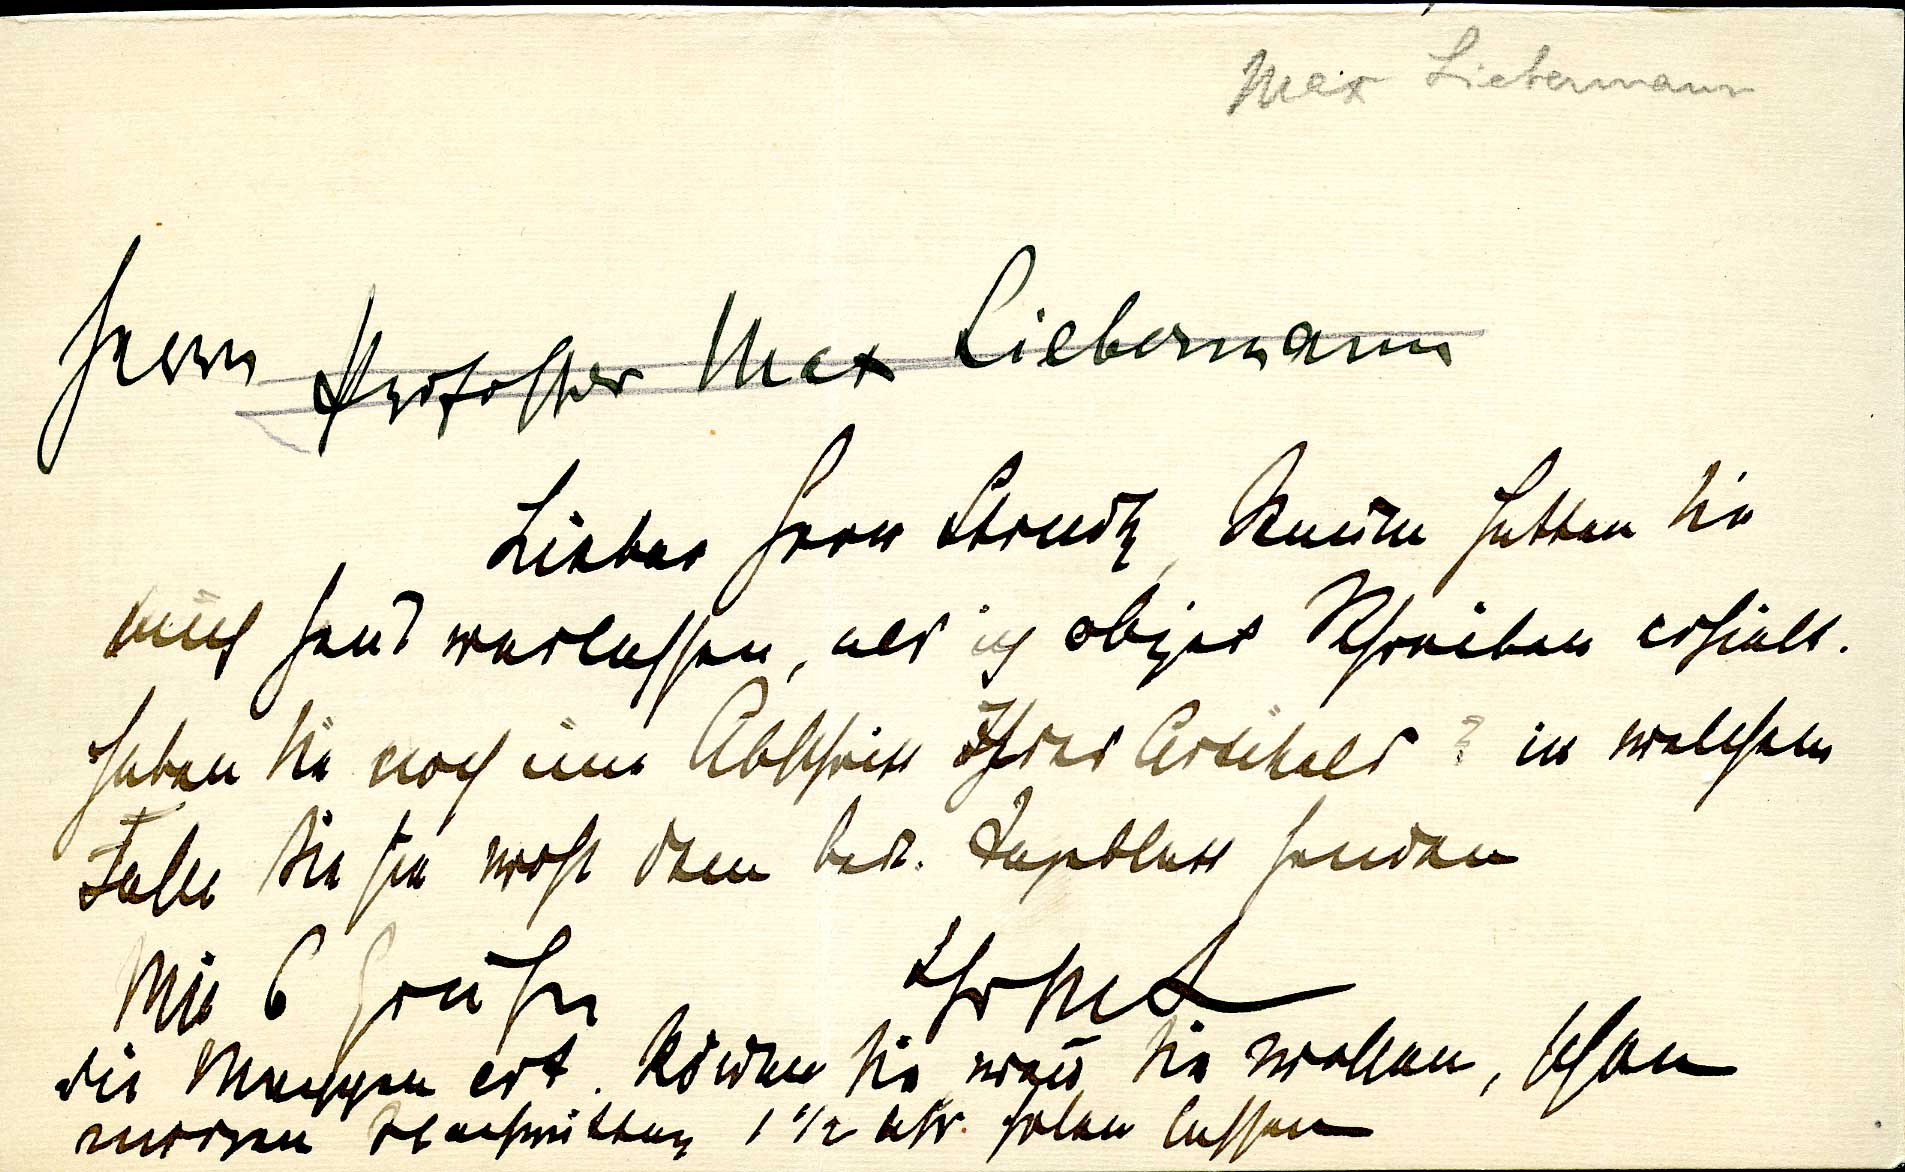 Max Liebermann
Herrn Professor Max Liebermann
Lieber Herr Struck, Kaum hatten Sie
mich verlassen, als ich obiges Schreiben erhielt.
Haben Sie noch eine Abschrift Ihres Artikels? in welchem
Falle Sie sie wohl dem Tageblatt senden
Mit Grüßen Ihr ML
die Mappen können Sie, wenn Sie wollen, schon
morgen Nachmittag 1 1/2 Uhr holen lassen